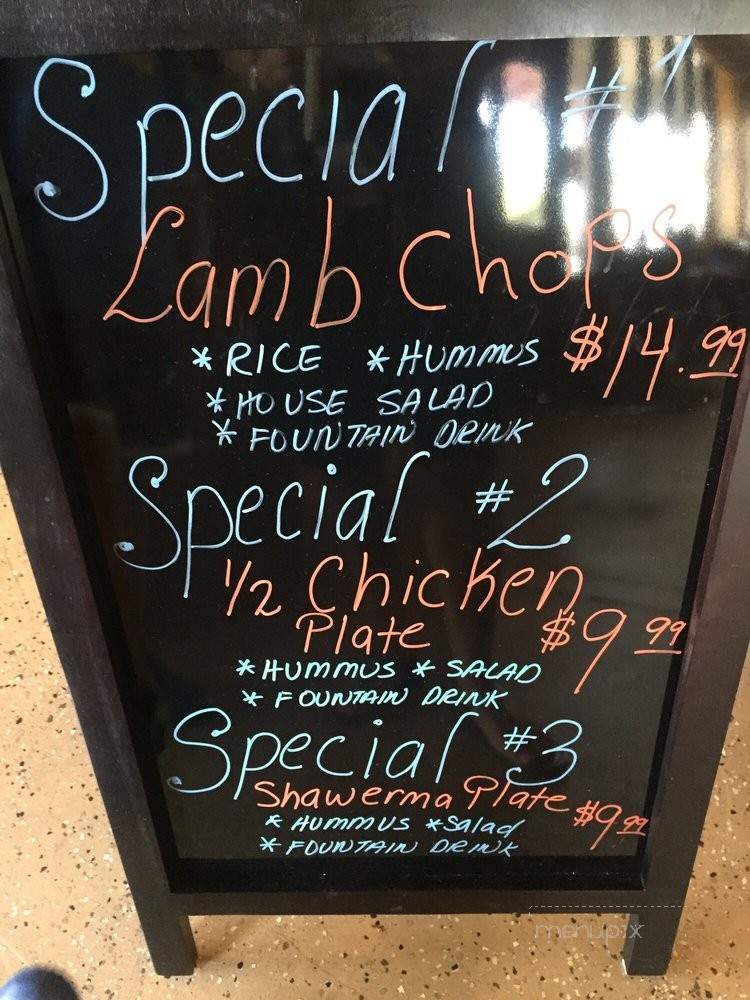 Special #1
Lamb Chops
* RICE * HUMMUS $14.99
* HOUSE SALAD
* FOUNTAIN DRINK
Special #2
1/2 Chicken
Plate $9 99
* HUMMUS * SALAD
* FOUNTAIN DRINK
Special #3
Shawerma Plate $9 99
* HUMMUS * Salad
* FOUNTAIN DRINK
menupix